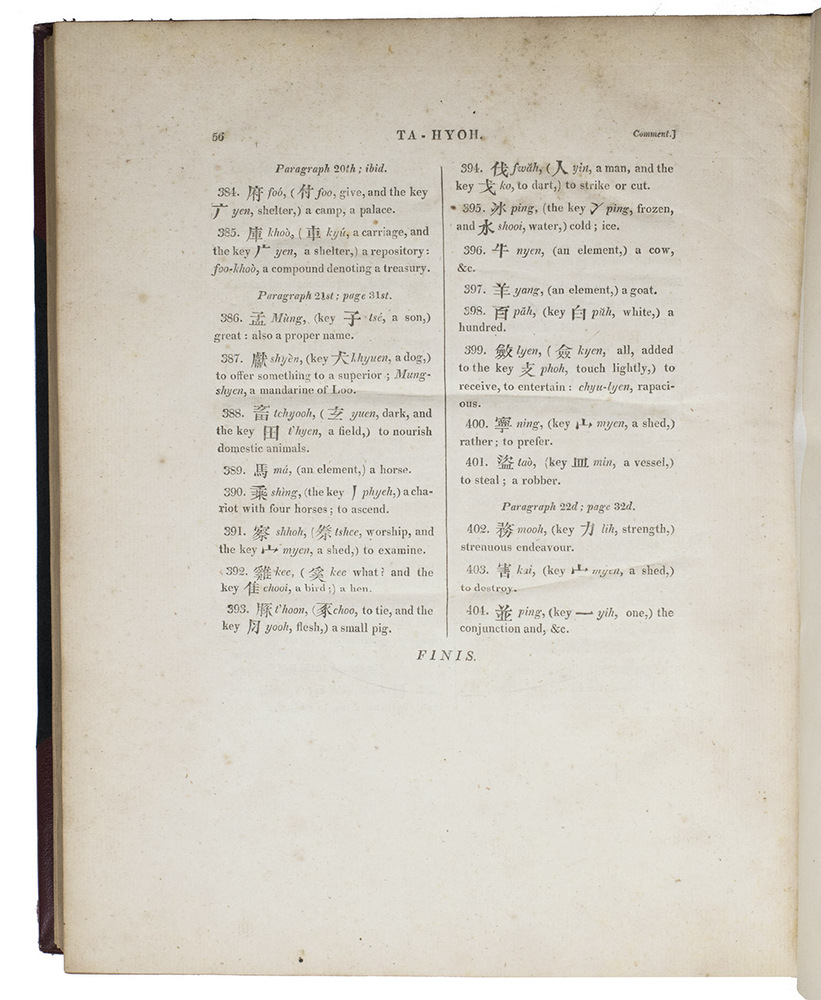 56
TA - HYOH.
Comment.]
Paragraph 20th; ibid.
384. 府 foó, (付 foo, give, and the key
广 yen, shelter,) a camp, a palace.
385. 庫 khoò, (車 kyú, a carriage, and
the key 广 yen, a shelter,) a repository:
foo-khoò, a compound denoting a treasury.
Paragraph 21st; page 31st.
386. 孟 Mùng, (key 子 tsé, a son,)
great: also a proper name.
387. 獻 shyèn, (key 犬 khyuen, a dog,)
to offer something to a superior; Mung-
shyen, a mandarine of Loo.
388. 畜 tchyooh, (玄 yuen, dark, and
the key 田 t'hyen, a field,) to nourish
domestic animals.
389. 馬 má, (an element,) a horse.
390. 乘 shìng, (the key 丿 phyeh,) a cha-
riot with four horses; to ascend.
391. 察 shhoh, (祭 tshee, worship, and
the key 宀 myen, a shed,) to examine.
392. 雞 kee, (奚 kee what? and the
key 隹 chooi, a bird;) a hen.
393. 豚 t'hoon, (豕 choo, to tie, and the
key 月 yooh, flesh,) a small pig.
394. 伐 fwăh, (人 yin, a man, and the
key 戈 ko, to dart,) to strike or cut.
395. 冰 ping, (the key 冫 ping, frozen,
and 水 shooi, water,) cold; ice.
396. 牛 nyen, (an element,) a cow,
&c.
397. 羊 yang, (an element,) a goat.
398. 百 păh, (key 白 păh, white,) a
hundred.
399. 斂 lyen, (僉 kyen, all, added
to the key 攴 phoh, touch lightly,) to
receive, to entertain: chyu-lyen, rapaci-
ous.
400. 寧 ning, (key 宀 myen, a shed,)
rather; to prefer.
401. 盜 taò, (key 皿 min, a vessel,)
to steal; a robber.
Paragraph 22d; page 32d.
402. 務 mooh, (key 力 lih, strength,)
strenuous endeavour.
403. 害 kai, (key 宀 myen, a shed,)
to destroy.
404. 並 ping, (key 一 yih, one,) the
conjunction and, &c.
FINIS.